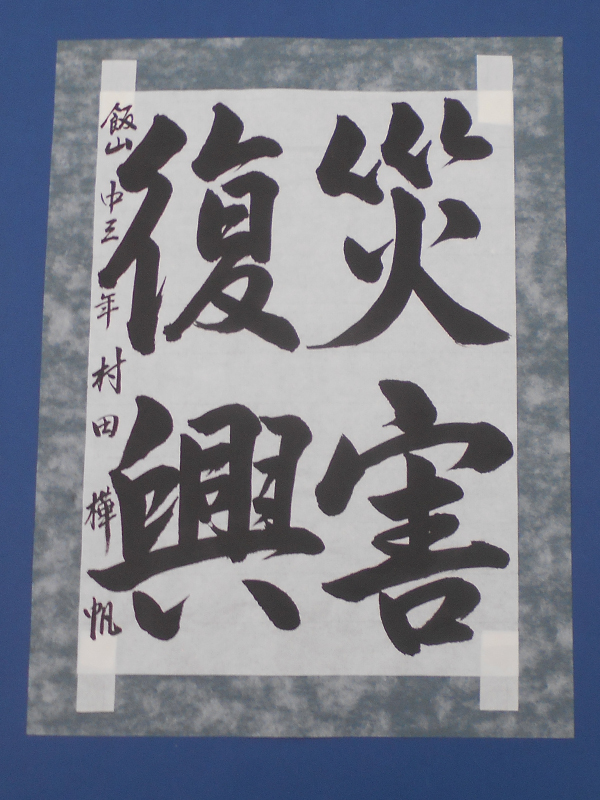 災害
復興
飯山中三年村田樺帆